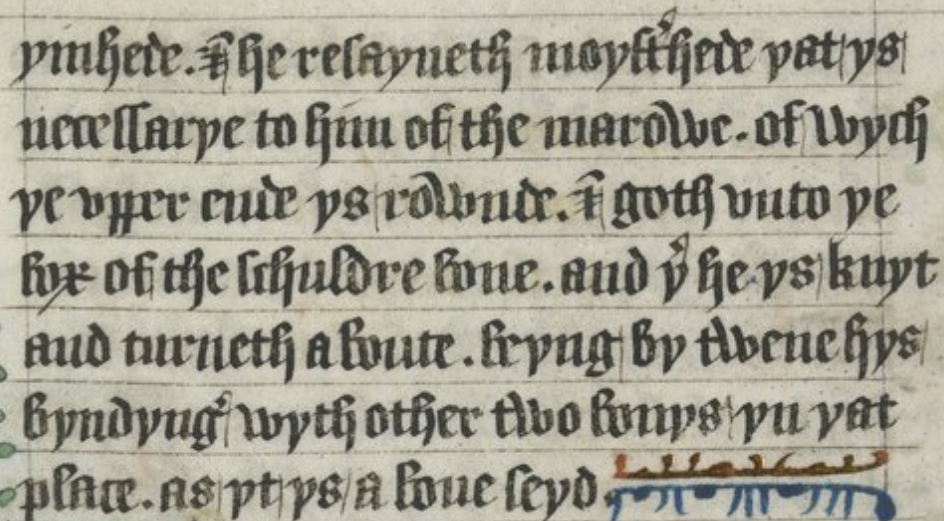 ymhede. ⁊ he resayueth moystʳhede yat ys
necessarye to hym of the marowe. of wych
ye vpper ende ys rownde. ⁊ goth vnto ye
box of the schuldre bone. and yʳ he ys knyt
and turneth a boute. beyng by twene hys
byndyngꝰ wyth other two bonys yn yat
place. as yt ys a boue seyd.